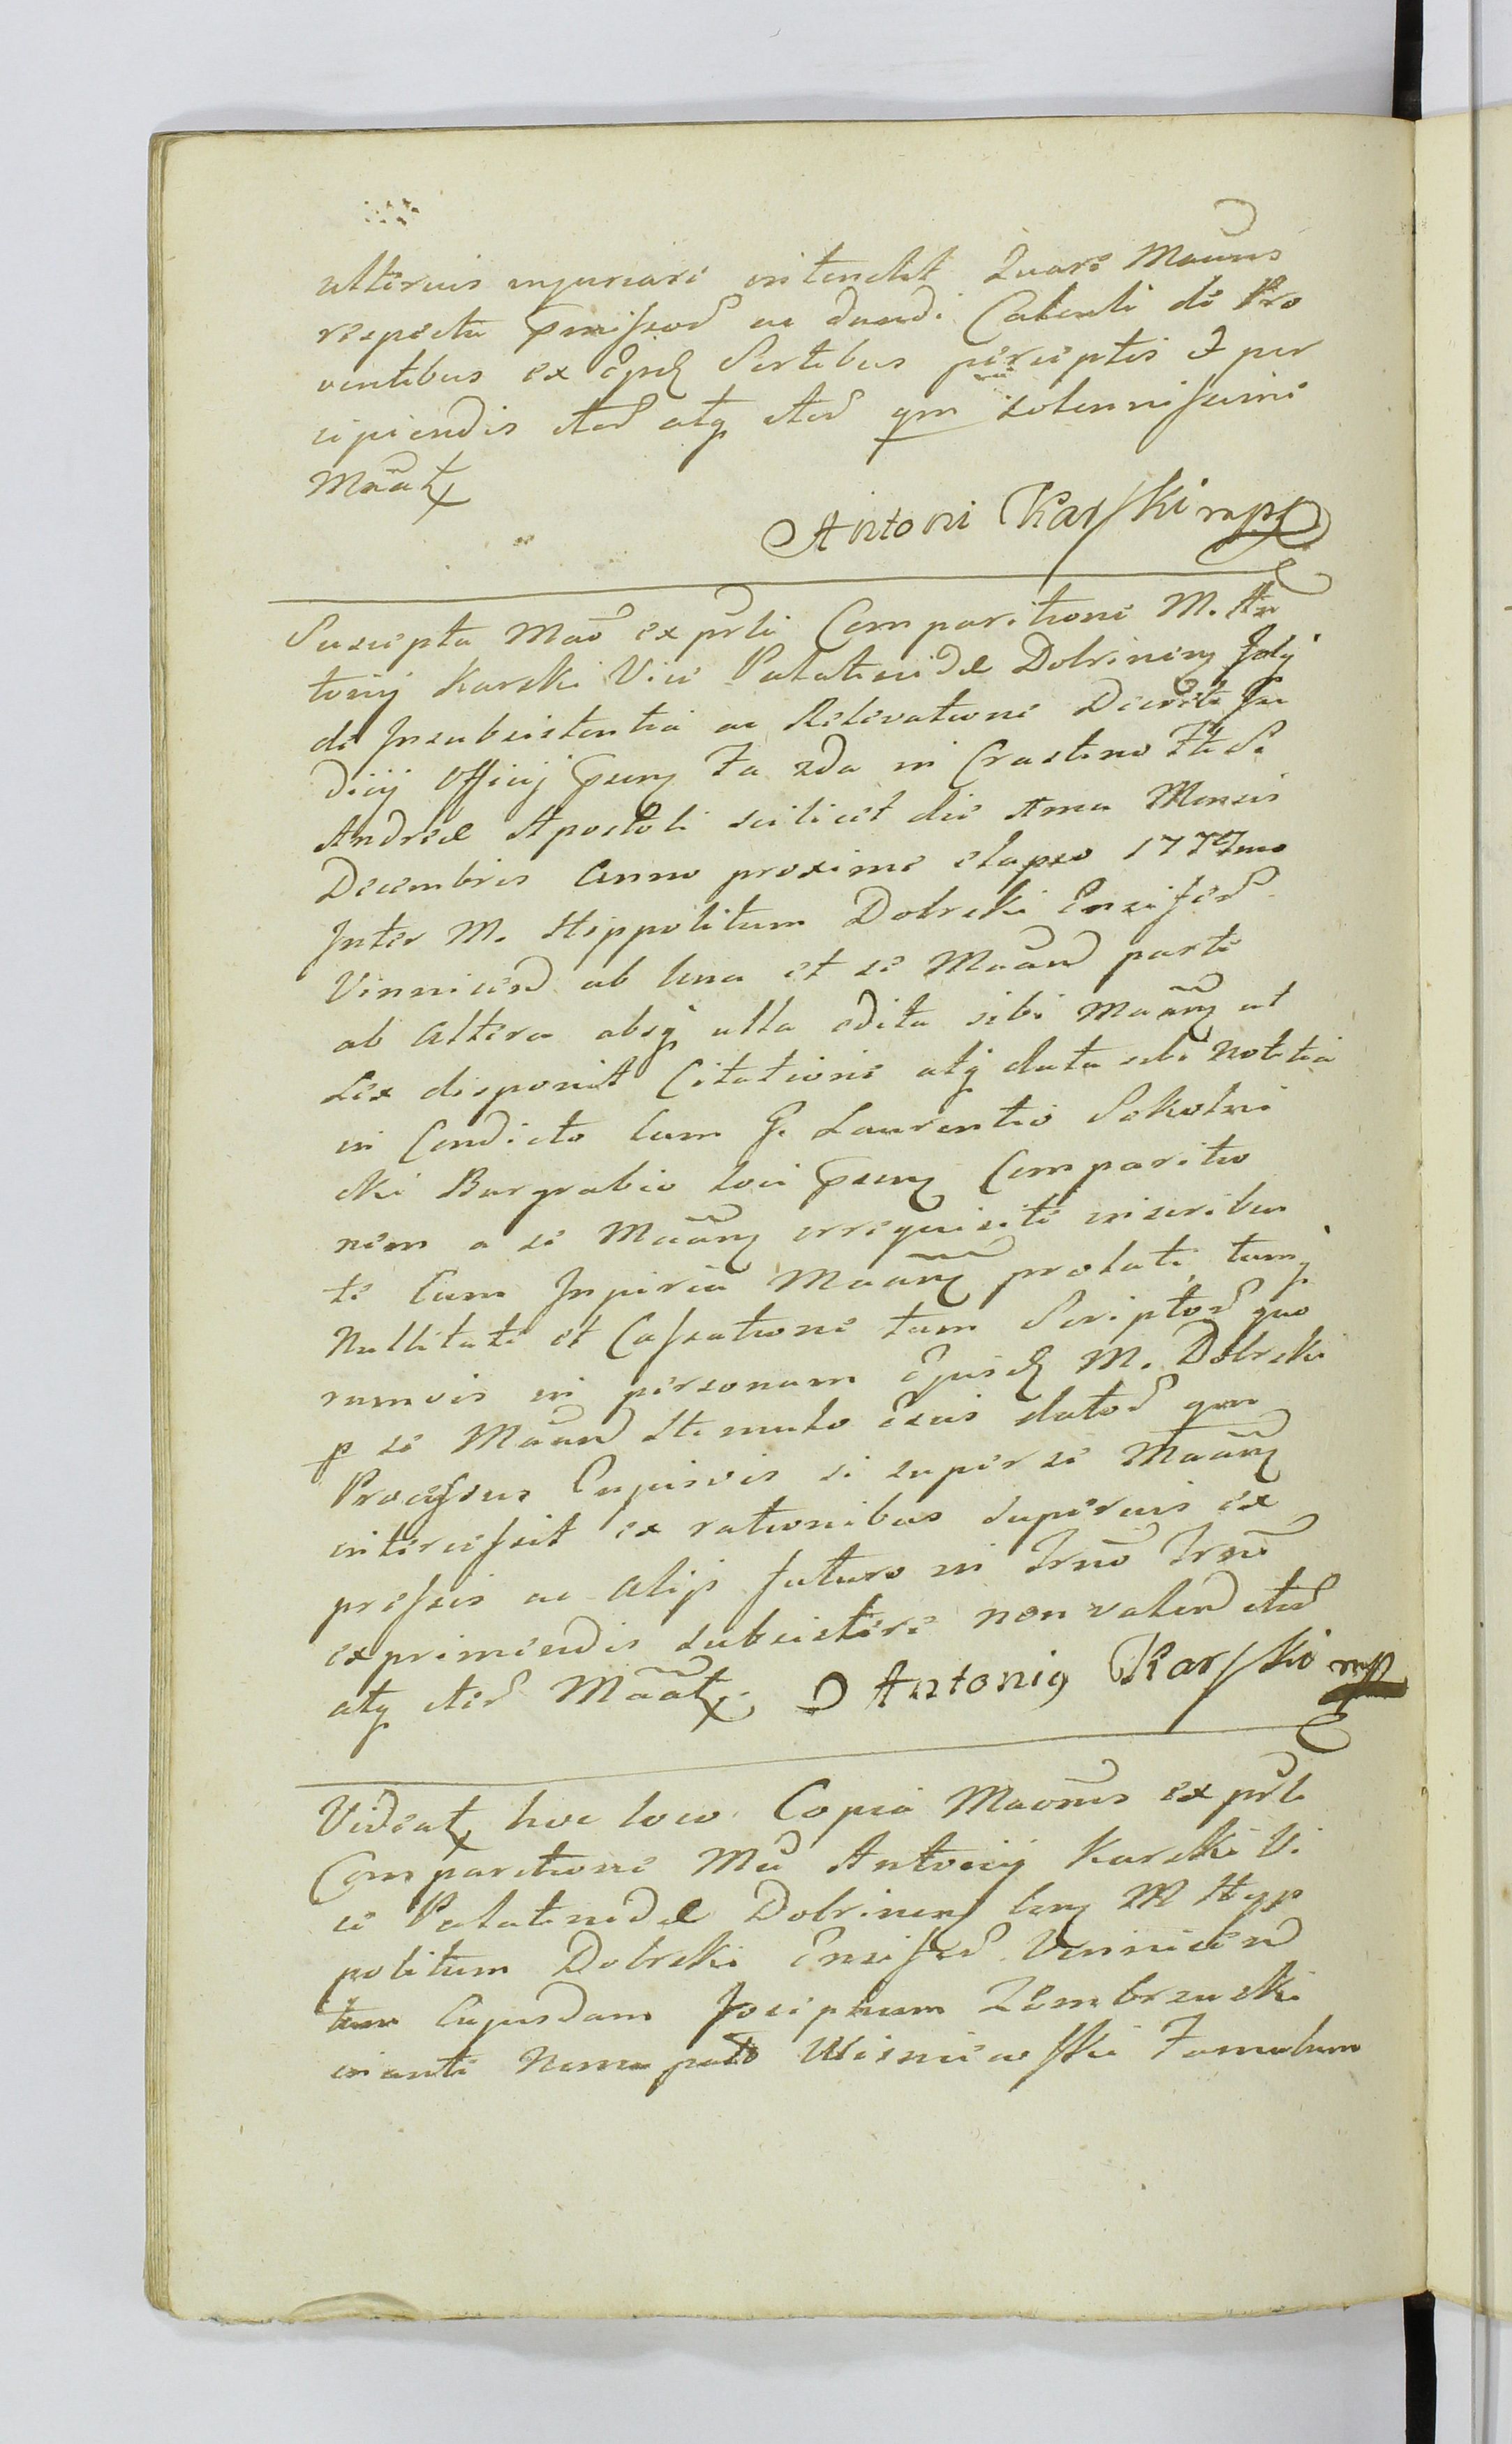 ulterius injuriari intendit Quare Maãns
respectu p̃missor̃ ac dandi Calculi de Pro
ventibus ex Ejusd Sortibus perceptis et per
cipiendis iter̃ atq iter̃ qm solennissime
Mãat
Antoni Karski mp
Suscepta Mañ ex pñti Comparitione M. An
tonij Karski Vice Palatinidæ Dobrinen
de Insubsistentia ac Relevatione Decreti Ju
dicij Officij p̃sen Fa 2da in Crastino Fti S.
Andreæ Apostoli scilicet die 1ma Mensis
Decembris Anno proxime elapso 1777mo
Inter M. Hippolitum Dobrski Ensifer̃
Vinnicen ab una et se Maãn parte
ab altera absq ulla edita sibi Maãn ut
Lex disponit Citatione atq data sibi Notitia
in Condicto cum G. Laurentio Sokolni
cki Burgrabio loci p̃sen Comparitio
nem a se Maãn irrequisite inscriben
te cum Injuria Maãn prolati tumq
Nullitate et Cassatione tam Scriptor̃ quo
rumvis in personam Ejusd M. Dobrski
p se Maãn Stimulo Ejus dator̃ qm
Processus Cujusvis si super se Maãn
intercessit ex rationibus superius ex
pressis ac alijs futuro in Trño Trñe
exprimendis subsistere non valen iter̃
atq iter̃ Mãat. Antonig Karski mp
Videat hoc loco Copia Maõnis ex pñti
Comparitione Mci Antonij Karski Vi
ce Palatinidæ Dobrinen M Hyp
politum Dobrski Ensifer̃ Vinnicen
tum Cujusdam Josephum Zembrzuski
inante Nuncupato Wisniewski Famulum